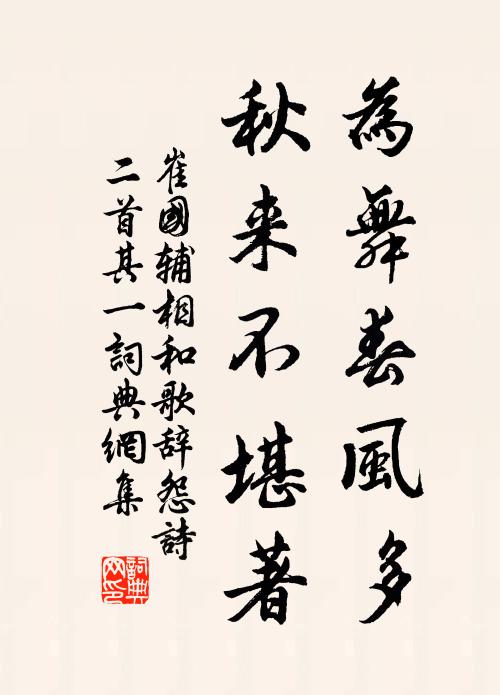 為舞春風多
秋来不堪著
崔國辅相和歌辞怨詩
二首其一詞典網集
詞典网印